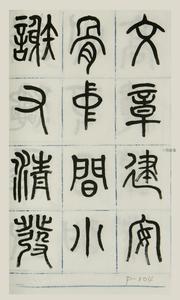 文章建安
骨中間小
謝又清發
P-104